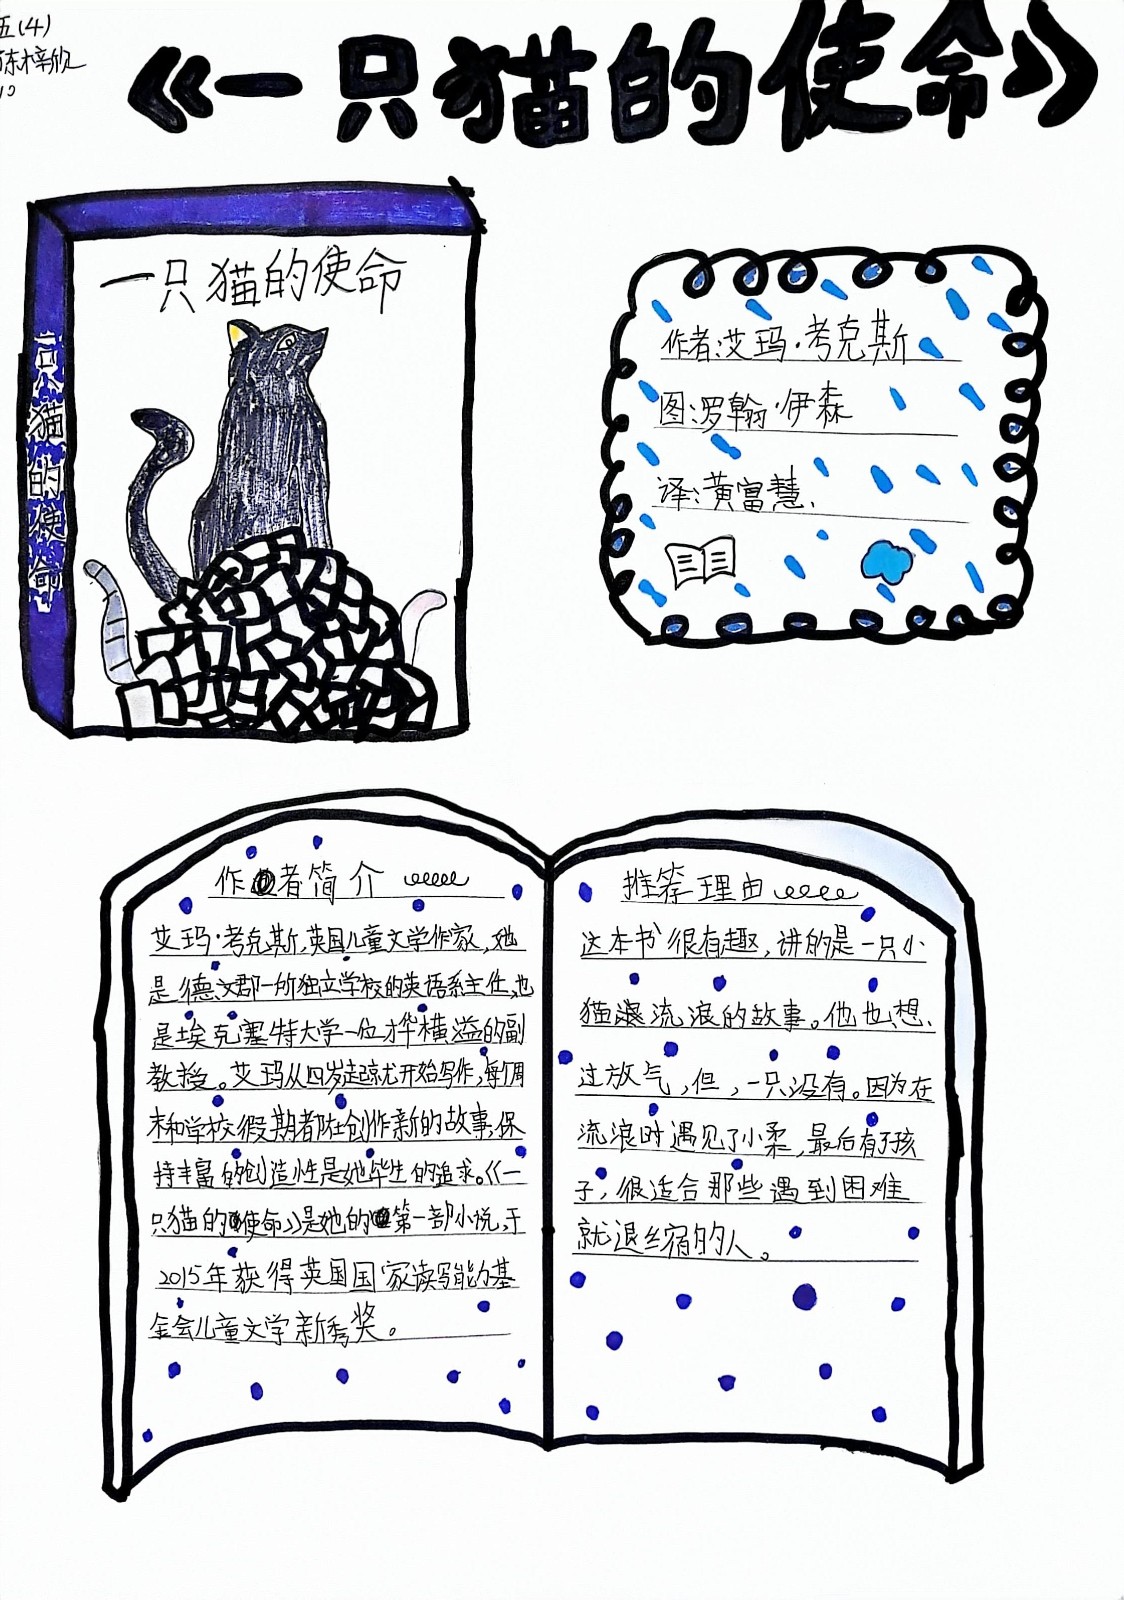 五(4)
陈梓欣
10
《一只猫的使命》
一只猫的使命
一只猫的使命
作者:艾玛·考克斯
图:罗翰·伊森
译:黄富慧
作者简介
艾玛·考克斯,英国儿童文学作家,她
是德文郡一所独立学校的英语系主任,也
是埃克塞特大学一位才华横溢的副
教授。艾玛从四岁起就开始写作,每个周
末和学校假期都在创作新的故事,保
持丰富的创造性是她毕生的追求。《一
只猫的使命》是她的第一部小说,于
2015年获得英国国家读写能力基
金会儿童文学新秀奖。
推荐理由
这本书很有趣,讲的是一只小
猫流浪的故事。他也想
过放气,但,一只没有。因为在
流浪时遇见了小柔,最后有了孩
子,很适合那些遇到困难
就退缩的人。